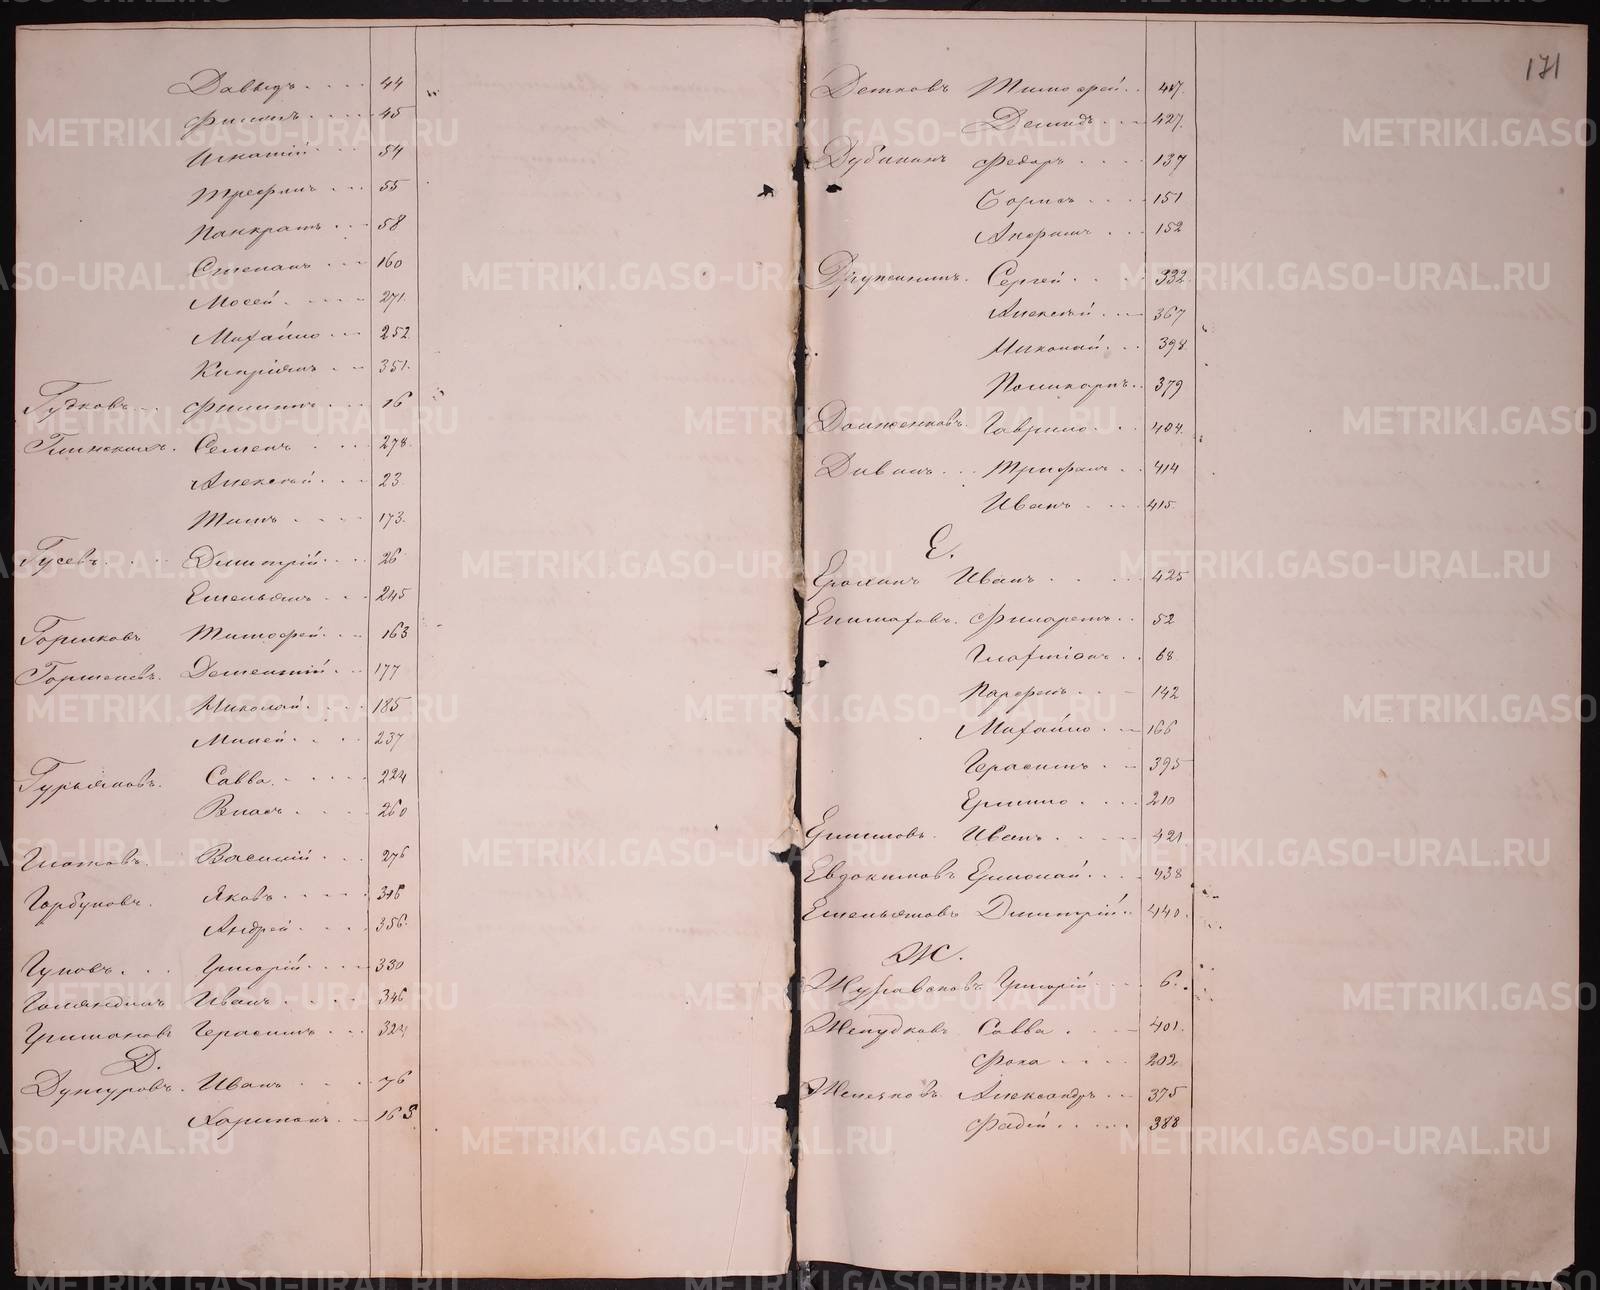 Давыдъ 44
Филипъ 45
Игнатій 54
Трефилъ 55
Панкратъ 58
Степанъ 160
Мосей 271.
Михайло 252
Кипріянъ 351.
Гудковъ Филиппъ 16
Глинскихъ. Семенъ 278.
Алексѣй 23
Титъ 173.
Гусевъ Дмитрій 26
Емельянъ 245
Горшковъ Тимофей 163
Горшеневъ. Дементій 177
Николай 185
Миней 237
Гурьяновъ. Савва. 224
Власъ 260
Глотовъ. Василій 276
Горбуновъ. Яковъ 346
Андрей 356.
Гуновъ. Григорій 330
Голяндинъ Иванъ 346
Гришановъ Герасимъ 324
Д.
Дунгуровъ. Иванъ 76
Харитонъ 163
171
Детковъ Тимофей 417.
Демидъ 427.
Дубининъ Федоръ 137
Борисъ 151
Анфимъ 152
Дружининъ. Сергей 332.
Алексѣй 367
Николай 398
Поликарпъ 379
Долженковъ. Гаврило 404.
Дивинъ Трифанъ 414
Иванъ 415.
Е.
Ерохинъ Иванъ 425
Епишаховъ. Филаретъ 52
Галахтіонъ 68
Парфенъ 142
Михайло 166
Герасимъ 395
Ермило 210
Ермиловъ. Иванъ 421.
Евдокимовъ Ермолай 438
Емельяновъ Дмитрій 440.
Ж.
Журавсковъ Григорій 6.
Желудковъ Савва 401.
Фока 202
Женяковъ. Александръ 375
Фадѣй 388
METRIKI.GASO-URAL.RU